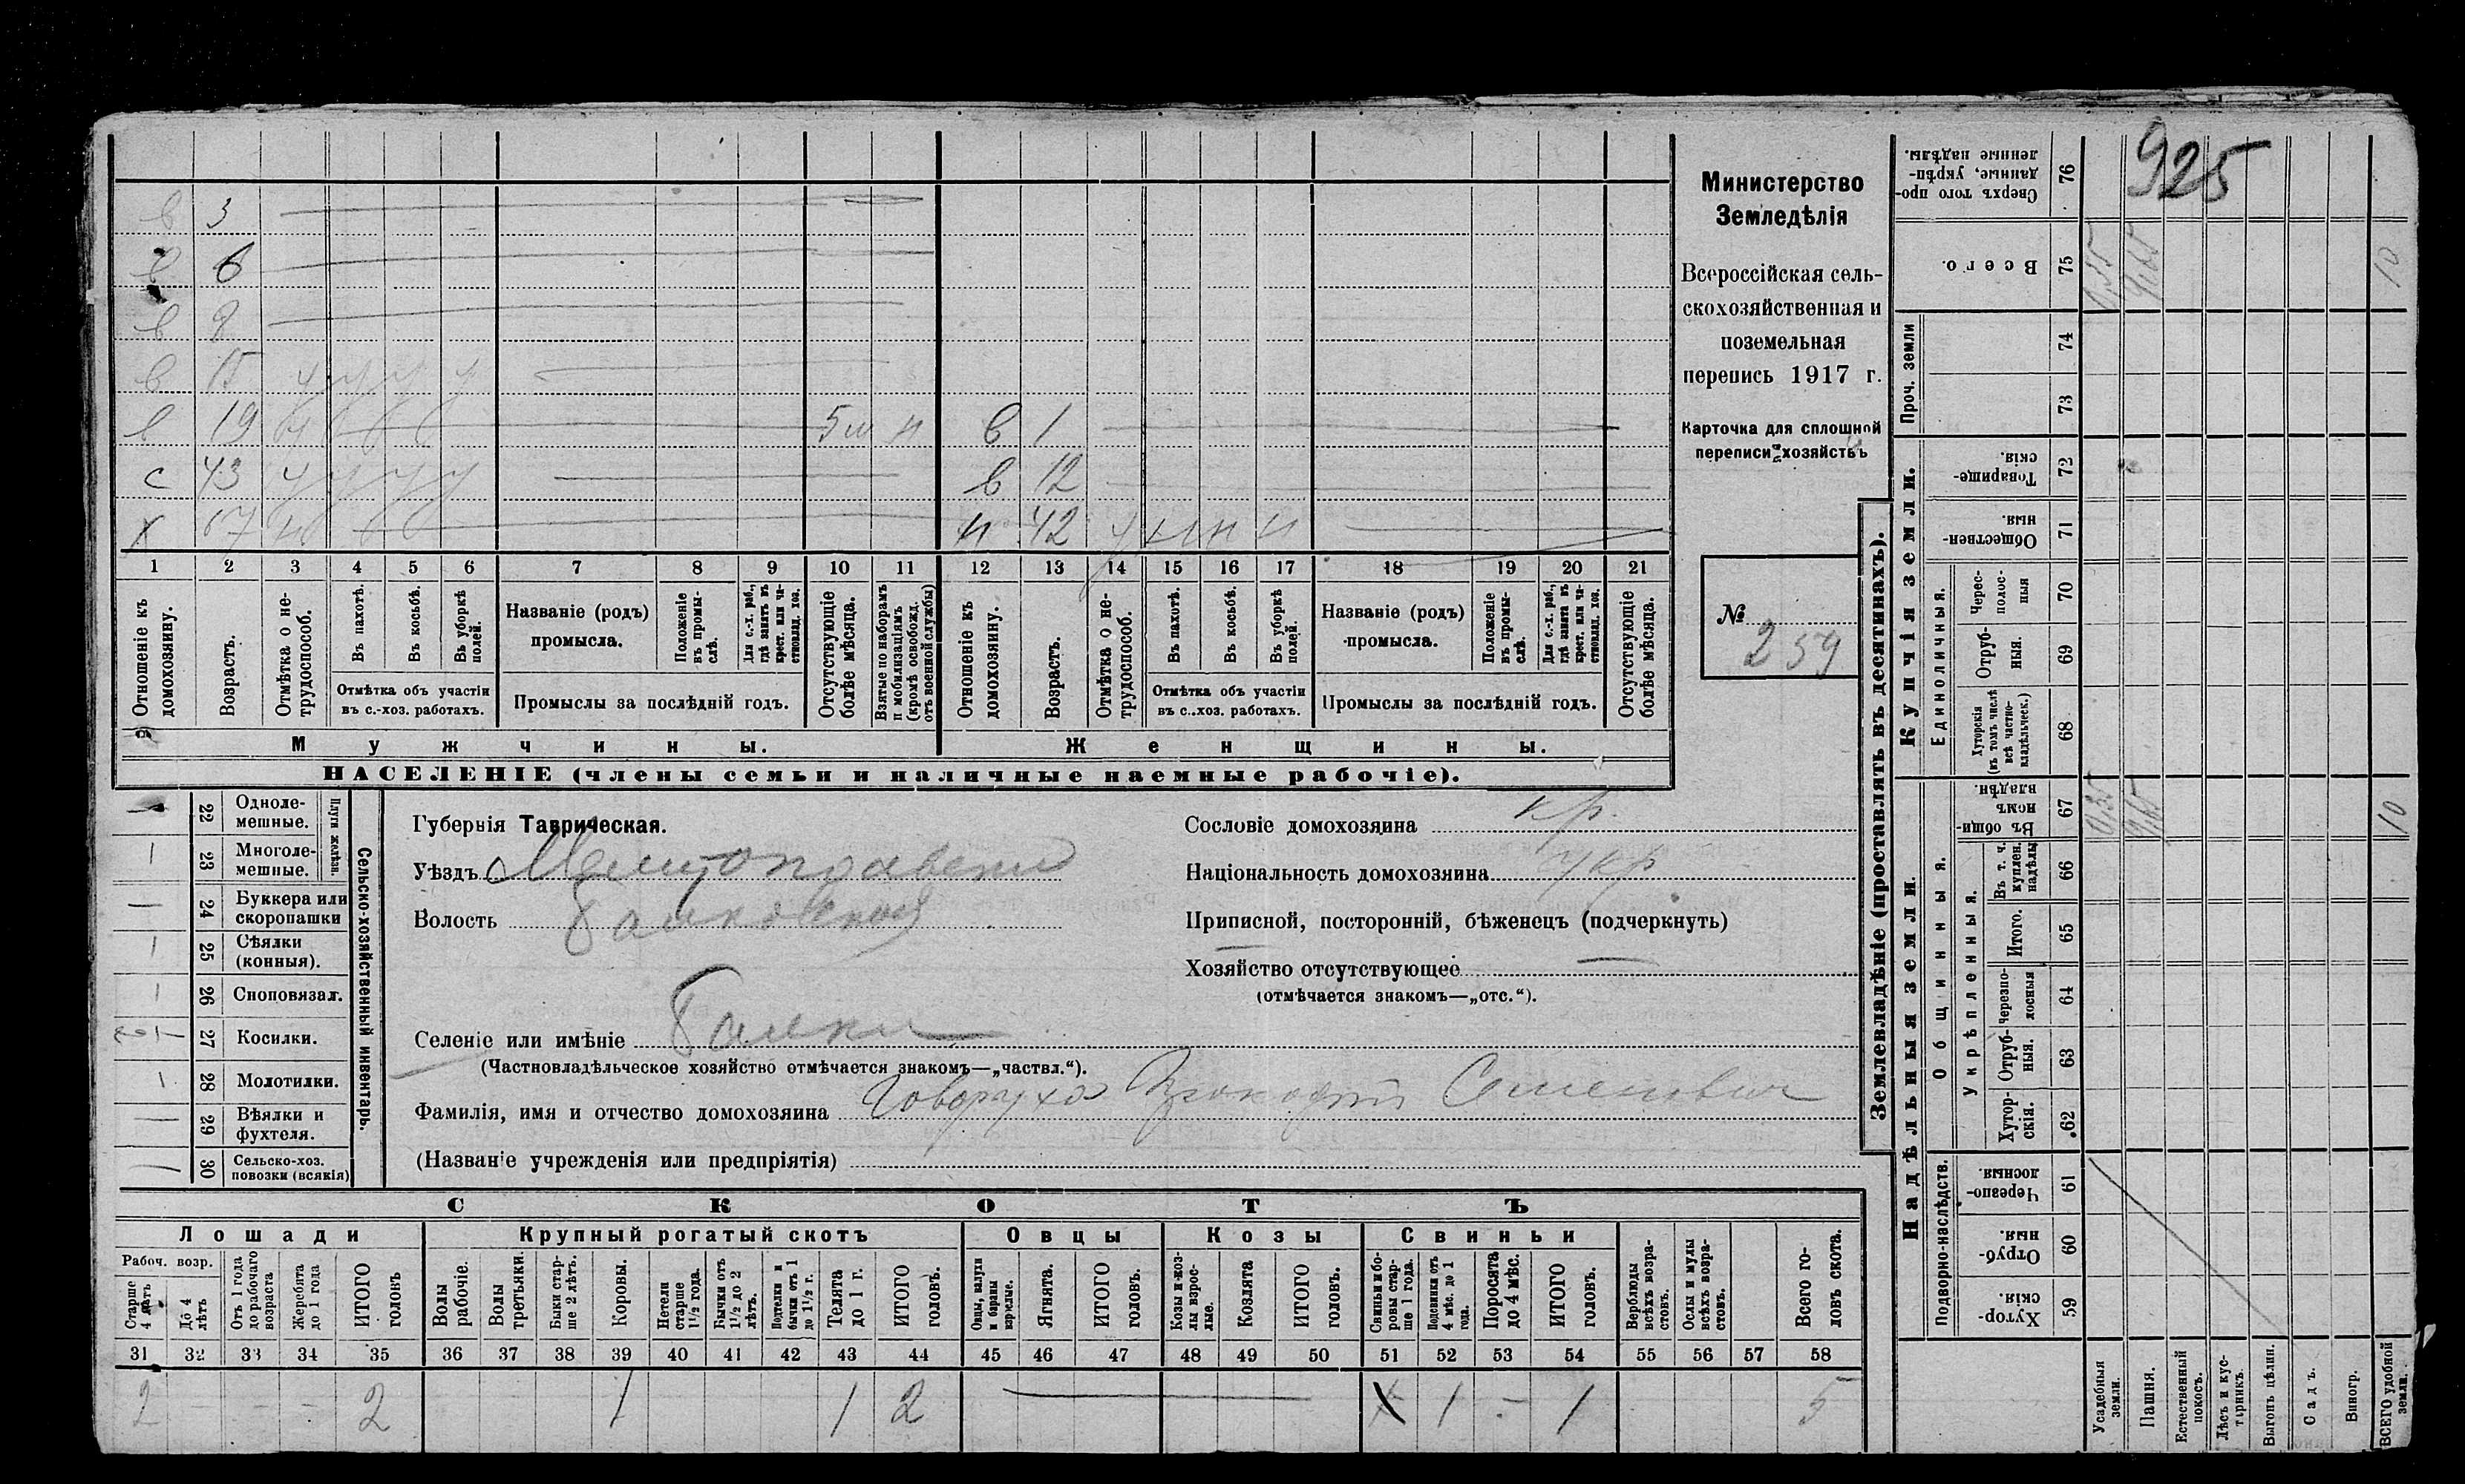 925
в 3
в 6
в 8
в 15 у у у у
в 19 5 м н в 1
с 43 у у у у в 12
х 67 н 42
1 2 3 4 5 6 7 8 9 10 11 12 13 14 15 16 17 18 19 20 21
Отношеніе къ домохозяину.
Возрастъ.
Отмѣтка о не-трудоспособ.
Въ пахотѣ.
Въ косьбѣ.
Въ уборкѣ полей.
Отмѣтка объ участіи
въ с.-хоз. работахъ.
Названіе (родъ)
промысла.
Положеніе въ промы-слѣ.
Для с.-х. раб., гдѣ занятъ въ крест. или ча-стновлад. хоз.
Промыслы за послѣдній годъ.
Отсутствующіе болѣе мѣсяца.
Взятые по наборамъ и мобилизаціямъ (кромѣ освобожд. отъ военной службы)
Отношеніе къ домохозяину.
Возрастъ.
Отмѣтка о не-трудоспособ.
Въ пахотѣ.
Въ косьбѣ.
Въ уборкѣ полей.
Отмѣтка объ участіи
въ с.-хоз. работахъ.
Названіе (родъ)
промысла.
Положеніе въ промы-слѣ.
Для с.-х. раб., гдѣ занятъ въ крест. или ча-стновлад. хоз.
Промыслы за послѣдній годъ.
Отсутствующіе болѣе мѣсяца.
Мужчины.
Женщины.
НАСЕЛЕНІЕ (члены семьи и наличные наемные рабочіе).
Министерство
Земледѣлія
Всероссійская сель-
скохозяйственная и
поземельная
перепись 1917 г.
Карточка для сплошной
переписи хозяйствъ
№
259
22 Одноле-мешные.
23 Многоле-мешные.
Плуги желѣзн.
24 Буккера или скоропашки
25 Сѣялки (конныя).
26 Сноповязал.
27 Косилки.
28 Молотилки.
29 Вѣялки и фухтеля.
30 Сельско-хоз. повозки (всякія)
Сельско-хозяйственный инвентарь.
Губернія Таврическая.
Уѣздъ Мелитопольскій
Волость Балковская
Селеніе или имѣніе Балки
(Частновладѣльческое хозяйство отмѣчается знакомъ—„частвл.“).
Фамилія, имя и отчество домохозяина Говоруха Прокофій Семенович
(Названіе учрежденія или предпріятія)
Сословіе домохозяина кр.
Національность домохозяина укр
Приписной, посторонній, бѣженецъ (подчеркнуть)
Хозяйство отсутствующее —
(отмѣчается знакомъ—„отс.“).
СКОТЪ
Лошади
Крупный рогатый скотъ
Овцы
Козы
Свиньи
Рабоч. возр.
Старше 4 лѣтъ
До 4 лѣтъ
Отъ 1 года до рабочаго возраста
Жеребята до 1 года
ИТОГО головъ
Волы рабочіе.
Волы третьяки.
Быки стар-ше 2 лѣтъ.
Коровы.
Нетели старше 1½ года.
Бычки отъ 1½ до 2 лѣтъ.
Подтелки и бычки отъ 1 до 1½ г.
Телята до 1 г.
ИТОГО головъ.
Овцы, валухи и бараны взрослые.
Ягнята.
ИТОГО головъ.
Козы и коз-лы взрос-лые.
Козлята
ИТОГО головъ.
Свиньи и бо-ровы стар-ше 1 года.
Подсвинки отъ 4 мѣс. до 1 года.
Поросята до 4 мѣс.
ИТОГО головъ.
Верблюды всѣхъ возра-стовъ.
Ослы и мулы всѣхъ возра-стовъ.
Всего го-ловъ скота.
31 32 33 34 35 36 37 38 39 40 41 42 43 44 45 46 47 48 49 50 51 52 53 54 55 56 57 58
2 - - - 2 1 1 2 — 1 - 1 5
Землевладѣніе (проставлять въ десятинахъ).
Надѣльныя земли.
Купчія земли.
Проч. земли
Подворно-наслѣдств.
Общинныя.
Укрѣпленныя.
Единоличныя.
59 Хутор-скія.
60 Отруб-ныя.
61 Черезпо-лосныя
62 Хутор-скія.
63 Отруб-ныя.
64 Черезпо-лосныя
65 Итого.
66 Въ т. ч. куплен. надѣлы
67 Въ общи-номъ владѣн.
0,35 9,65 10
68 Хуторскія (въ томъ числѣ всѣ частно-владѣльческ.)
69 Отруб-ныя.
70 Черес-полос-ныя
71 Обществен-ныя.
72 Товарище-скія.
73
74
75 Всего.
0,35 9,65 10
76 Сверхъ того про-данные, укрѣп-ленные надѣлы.
Усадебныя земли.
Пашня.
Естественный покосъ.
Лѣсъ и кус-тарникъ.
Выгонъ цѣлин.
Садъ.
Виногр.
ВСЕГО удобной земли.